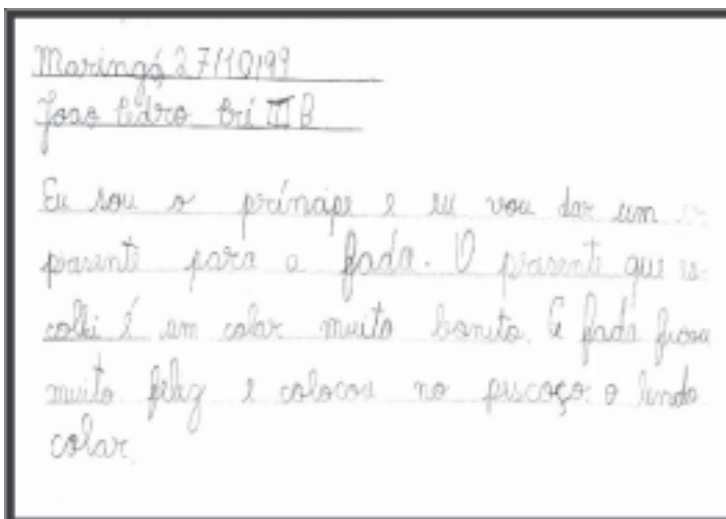 Maringá 27/10/99
Joao Pedro Pri III B
Eu sou o prínaipe e eu vou dar um
prasente para a fada. O prasente que es-
colhi é um colar muito bonito. A fada ficou
muito feliz e colocou no piscoço o lindo
colar.